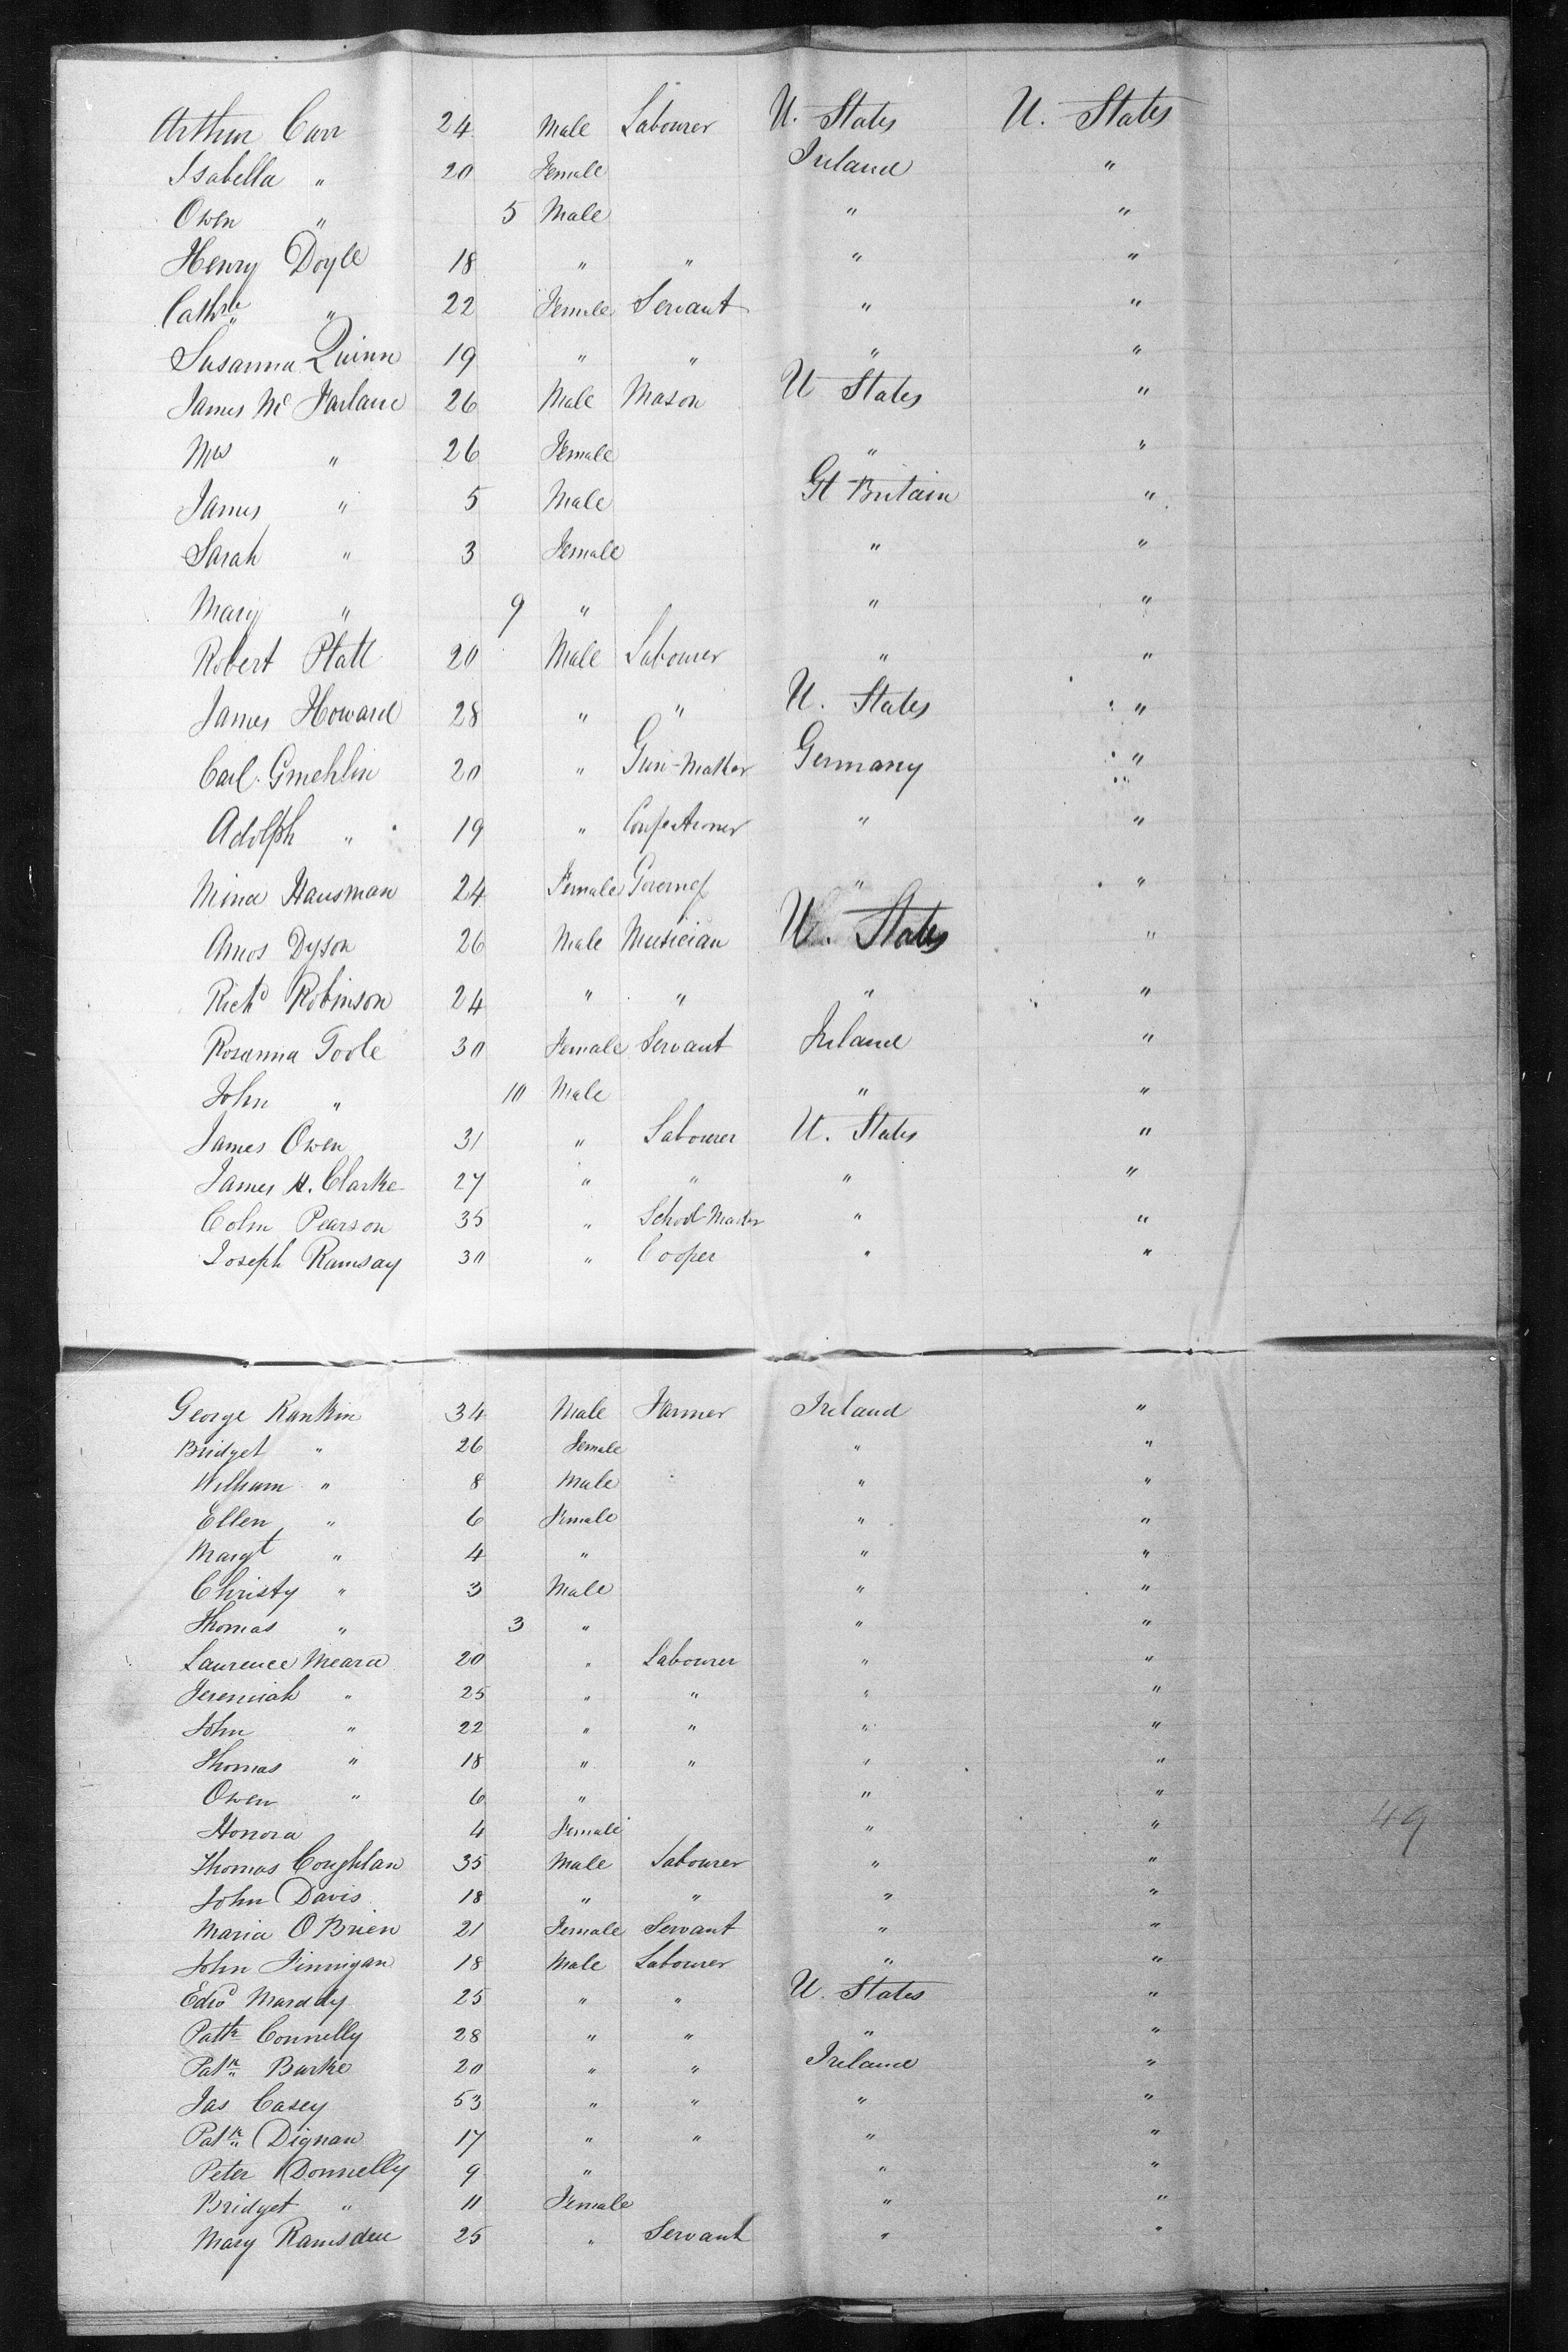 Arthur Carr 24 Male Labourer U. States U. States
Isabella " 20 Female Ireland "
Owen " 5 Male " "
Henry Doyle 18 " " " "
Cathne " 22 Female Servant " "
Susanna Quinn 19 " " " "
James Mc Farlane 26 Male Mason U States "
Mrs " 26 Female " "
James " 5 Male Gt Britain "
Sarah " 3 Female " "
Mary " 9 " " "
Robert Platt 20 Male Labourer " "
James Howard 28 " " U. States "
Carl Gmehlin 20 " Gun-Maker Germany "
Adolph " 19 " Confectioner " "
Mina Hausman 24 Female " "
Amos Dyson 26 Male Musician U. States "
Richd Robinson 24 " " " "
Rosanna Toole 30 Female Servant Ireland "
John " 10 Male " "
James Owen 31 " Labourer U. States "
James H. Clarke 27 " " " "
Colin Pearson 35 " School Master " "
Joseph Ramsay 30 " Cooper " "
George Rankin 34 Male Farmer Ireland "
Bridget " 26 Female " "
William " 8 Male " "
Ellen " 6 Female " "
Margt " 4 " " "
Christy " 3 Male " "
Thomas " 3 " " "
Laurence Meara 20 " Labourer " "
Jeremiah " 25 " " " "
John " 22 " " " "
Thomas " 18 " " " "
Owen " 6 " " "
Honora 4 Female " "
Thomas Coughlan 35 Male Labourer " "
John Davis 18 " " " "
Maria O Brien 21 Female Servant " "
John Finnigan 18 Male Labourer " "
Edwd 25 " " U. States "
Patk Connelly 28 " " " "
Patk Burke 20 " " Ireland "
Jas Casey 53 " " " "
Patk Dignan 17 " " " "
Peter Donnelly 9 " " "
Bridget " 11 Female " "
Mary Ramsden 25 " Servant " "
49